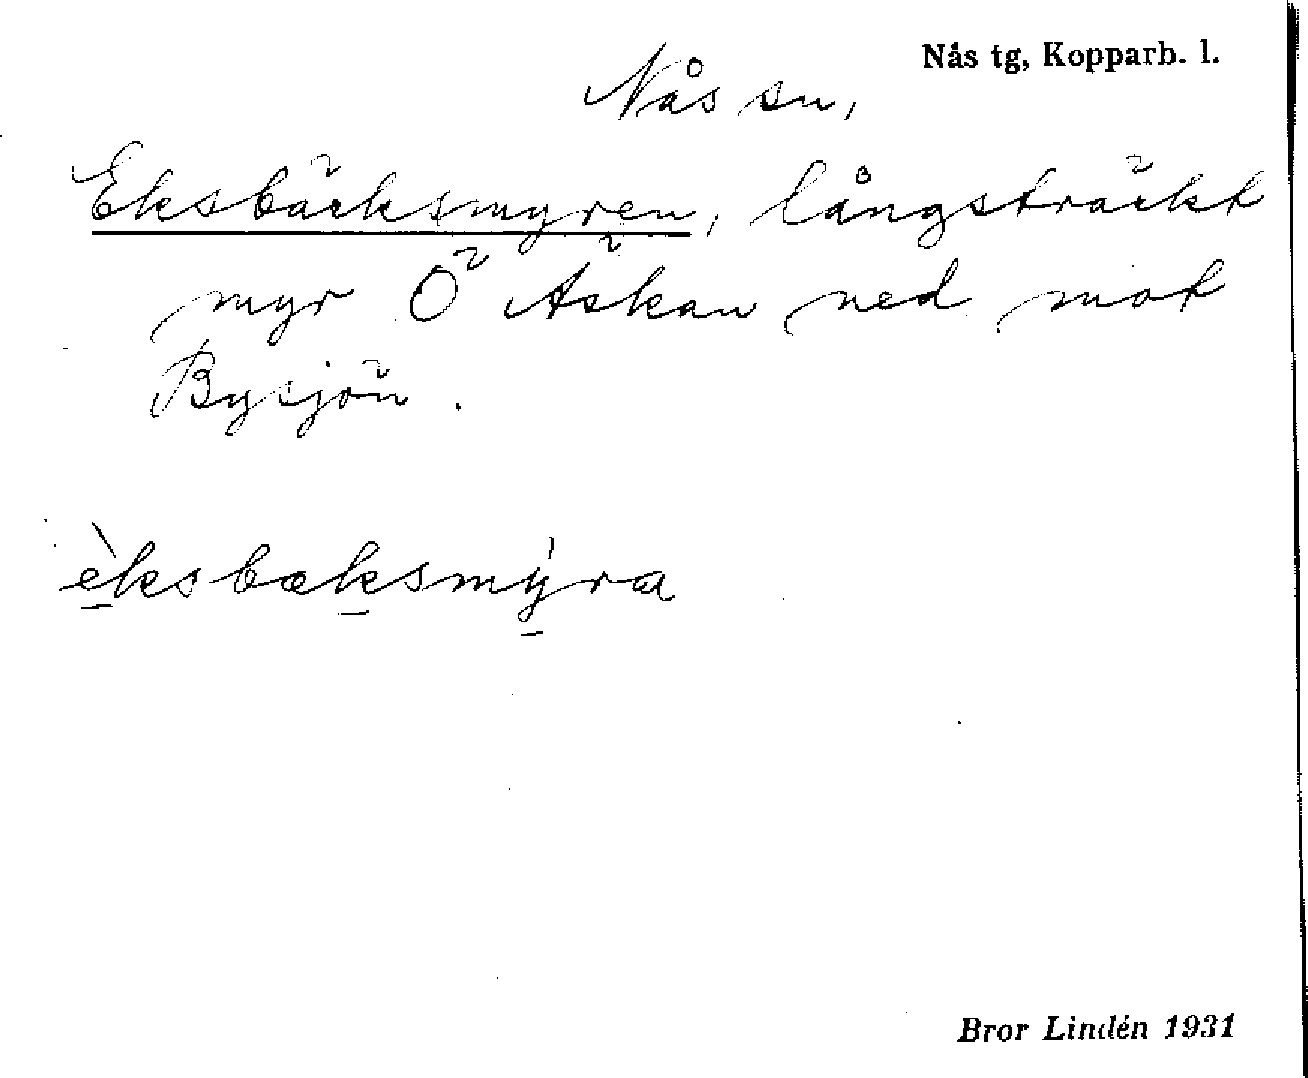 Nås tg, Kopparb. l.
Nås sn,
Eksbäcksmyren, långsträckt
myr Ö Äskan ned mot
Bysjön.
èksbæksmýra
Bror Lindén 1931